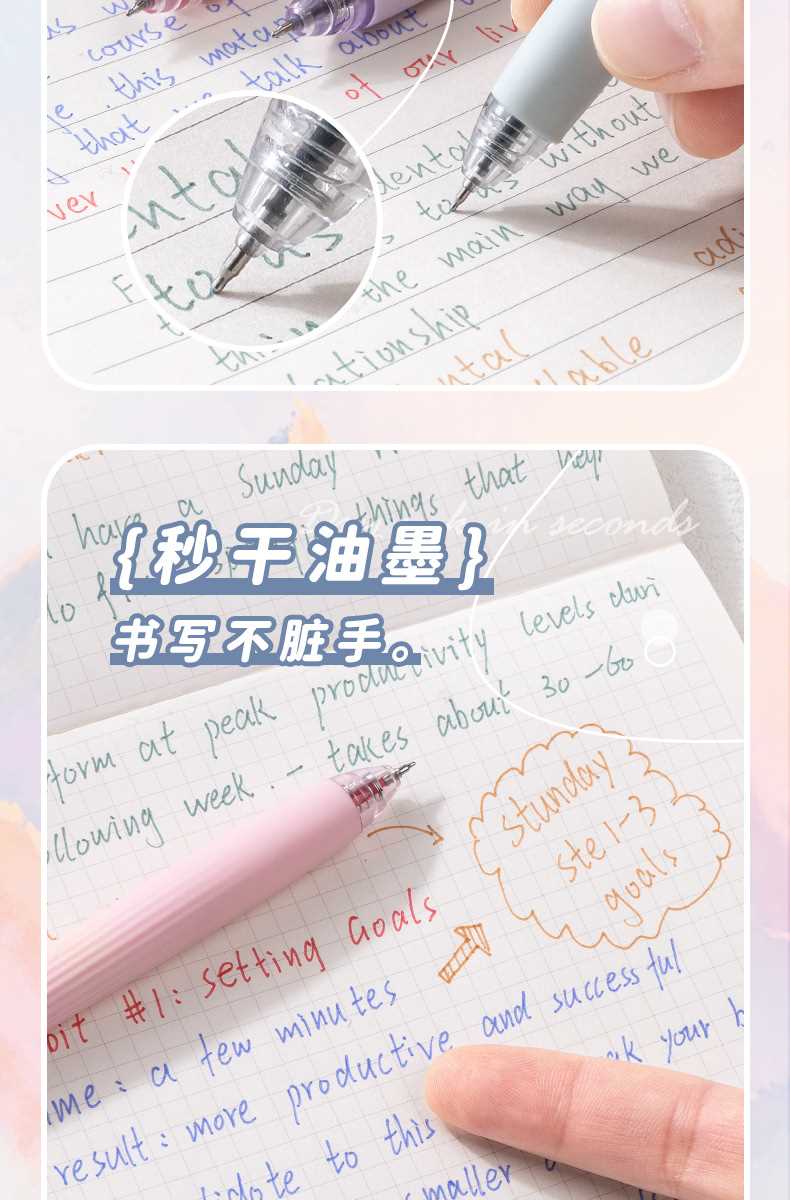 course of
this
that we talk about
of our
ver
dental
to us without
the main way we
think
lationship
ntal
llable
ntal
to us
have a Sunday
things that help
Dry ink in seconds
{秒干油墨}
书写不脏手。
form at peak productivity levels duri
ollowing week. - takes about 30-60
stunday
ste 1-3
goals
bit #1: setting Goals
ime: a few minutes
result: more productive and successful
tidote to this
ak your b
smaller